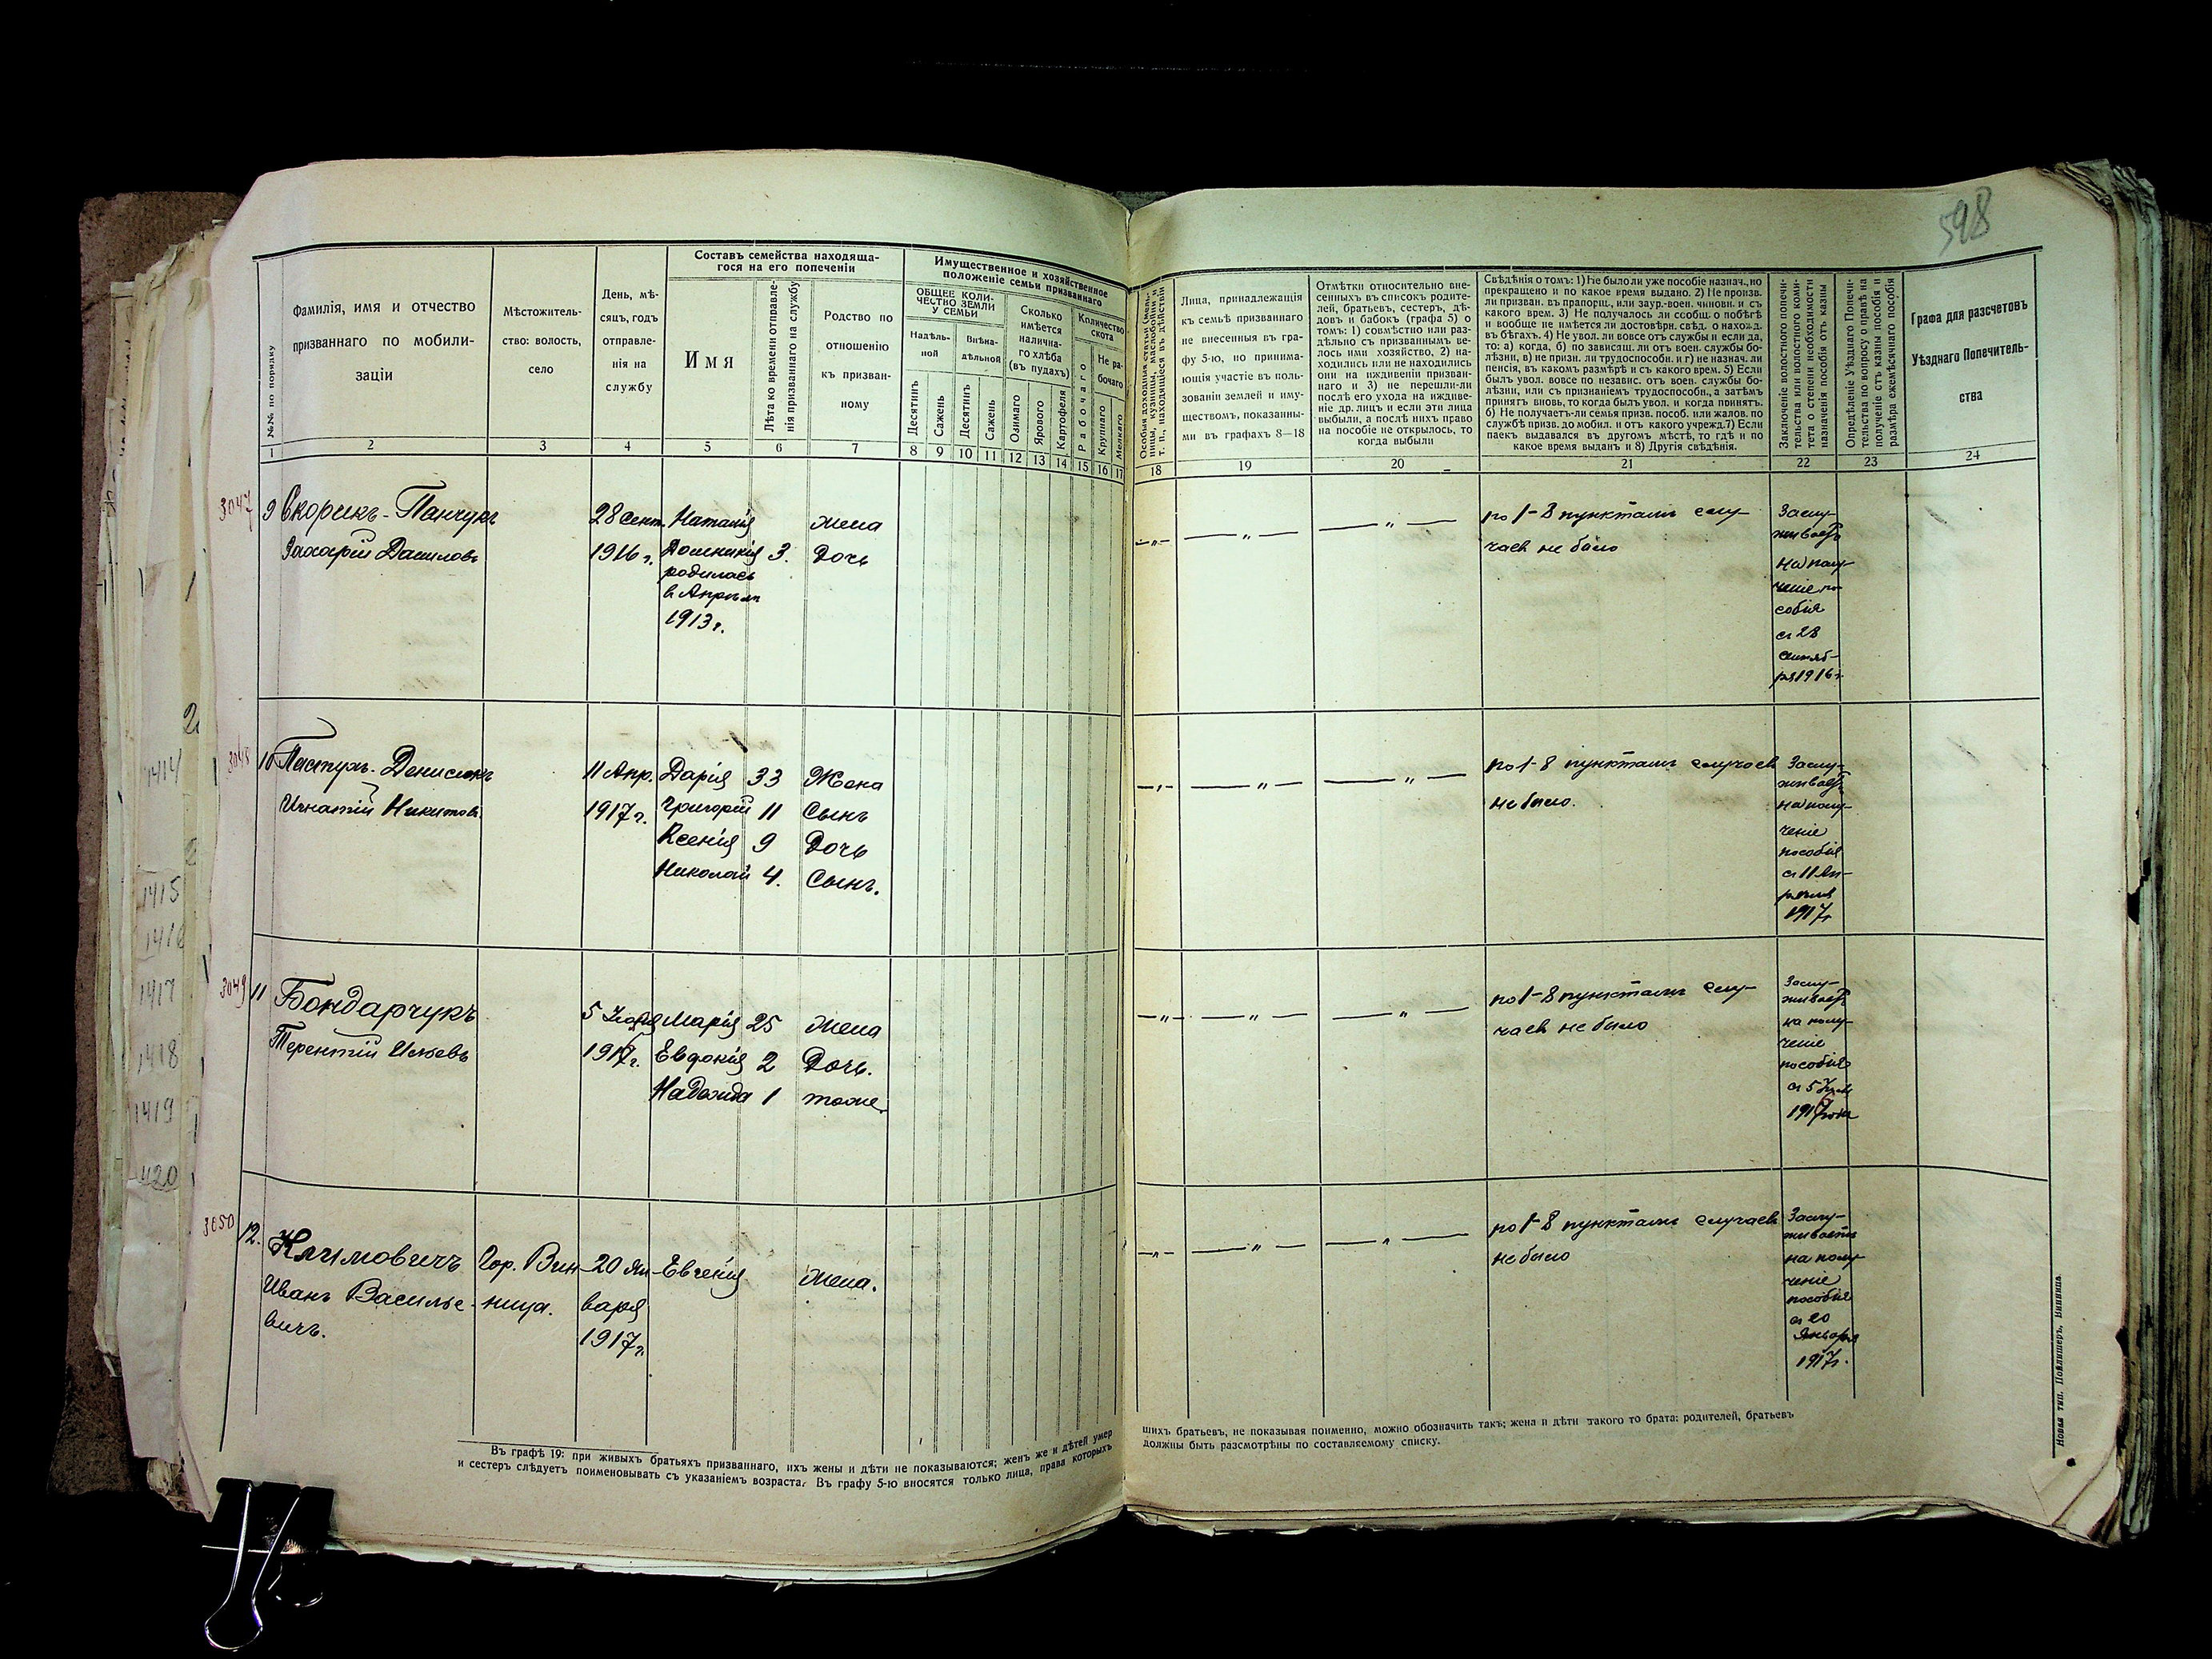 598
Составъ семейства находяща-
гося на его попеченіи
Имущественное и хозяйственное
положеніе семьи призваннаго
№№ по порядку
Фамилія, имя и отчество
призваннаго по мобили-
заціи
Мѣстожитель-
ство: волость,
село
День, мѣ-
сяцъ, годъ
отправле-
нія на
службу
Имя
Лѣта ко времени отправле-
нія призваннаго на службу
Родство по
отношенію
къ призван-
ному
ОБЩЕЕ КОЛИ-
ЧЕСТВО ЗЕМЛИ
У СЕМЬИ
Надѣль-
ной
Внѣна-
дѣльной
Десятинъ
Сажень
Десятинъ
Сажень
Сколько
имѣется
налична-
го хлѣба
(въ пудахъ)
Озимаго
Ярового
Картофеля
Количество
скота
Рабочаго
Не ра-
бочаго
Крупнаго
Мелкаго
Лица, принадлежащія
къ семьѣ призваннаго
не внесенныя въ гра-
фу 5-ю, но принима-
ющія участіе въ поль-
зованіи землей и иму-
ществомъ, показанны-
ми въ графахъ 8—18
Отмѣтки относительно вне-
сенныхъ въ списокъ родите-
лей, братьевъ, сестеръ, дѣ-
довъ и бабокъ (графа 5) о
томъ: 1) совмѣстно или раз-
дѣльно съ призваннымъ ве-
лось ими хозяйство, 2) на-
ходились или не находились
они на иждивеніи призван-
наго и 3) не перешли-ли
послѣ его ухода на иждиве-
ніе др. лицъ и если эти лица
выбыли, а послѣ нихъ право
на пособіе не открылось, то
когда выбыли
Свѣдѣнія о томъ: 1) Не было ли уже пособіе назнач., но
прекращено и по какое время выдано. 2) Не произв.
ли призван. въ прапорщ., или заур.-воен. чиновн. и съ
какого врем. 3) Не получалось ли сообщ. о побѣгѣ
и вообще не имѣется ли достовѣрн. свѣд. о нахожд.
въ бѣгахъ. 4) Не увол. ли вовсе отъ службы и если да,
то: а) когда, б) по зависящ. ли отъ воен. службы бо-
лѣзни, в) не призн. ли трудоспособн. и г) не назнач. ли
пенсія, въ какомъ размѣрѣ и съ какого врем. 5) Если
былъ увол. вовсе по независ. отъ воен. службы бо-
лѣзни, или съ признаніемъ трудоспособн., а затѣмъ
принятъ вновь, то когда былъ увол. и когда принятъ.
6) Не получаетъ-ли семья призв. пособ. или жалов. по
службѣ призв. до мобил. и отъ какого учрежд. 7) Если
паекъ выдавался въ другомъ мѣстѣ, то гдѣ и по
какое время выданъ и 8) Другія свѣдѣнія.
Заключеніе волостного попечи-
тельства или волостного коми-
тета о степени необходимости
назначенія пособія отъ казны
Опредѣленіе Уѣзднаго Попечи-
тельства по вопросу о правѣ на
полученіе отъ казны пособія и
размѣра ежемѣсячнаго пособія
Графа для разсчетовъ
Уѣзднаго Попечитель-
ства
1 2 3 4 5 6 7 8 9 10 11 12 13 14 15 16 17 18 19 20 21 22 23 24
3047 9 Скорикъ-Панчукъ 28 Сент. Наталія жена
Захарій Даниловъ 1916 г. Домникія 3. Дочь
родилась
в Апрѣлѣ
1913 г.
—„— —„— —„— по 1-8 пунктамъ слу-
чаев не было
Заслу-
живаетъ
на полу-
ченіе по-
собія
съ 28
сентяб-
ря 1916 г.
3048 10 Пастухъ-Денисюкъ 11 Апр. Дарія 33 Жена
Игнатій Никитовъ 1917 г. Григорій 11 Сынъ
Ксенія 9 Дочь
Николай 4. Сынъ.
—„— —„— —„— по 1-8 пунктамъ случаев
не было.
Заслу-
живаетъ
на полу-
ченіе
пособія
съ 11 Ап-
рѣля
1917 г.
3049 11 Бондарчукъ 5 Марія 25 жена
Терентій Ильевъ Евдокія 2 Дочь.
Надежда 1 тоже
—„— —„— —„— по 1-8 пунктамъ слу-
чаев не было
Заслу-
живаетъ
на полу-
ченіе
пособія
съ 5
года
3050 12. Климовичъ Гор. Вин- 20 Ян- Евгенія жена.
Иванъ Василье- ница. варя
вичъ. 1917 г.
—„— —„— —„— по 1-8 пунктамъ случаев
не было
Заслу-
живаетъ
на полу-
ченіе
пособія
съ 20
Января
1917 г.
Въ графѣ 19: при живыхъ братьяхъ призваннаго, ихъ жены и дѣти не показываются; женъ же и дѣтей умер
шихъ братьевъ, не показывая поименно, можно обозначить такъ; жена и дѣти такого то брата: родителей, братьевъ
и сестеръ слѣдуетъ поименовывать съ указаніемъ возраста. Въ графу 5-ю вносятся только лица, права которыхъ
должны быть разсмотрѣны по составляемому списку.
1414
1415
1416
1417
1418
1419
1420